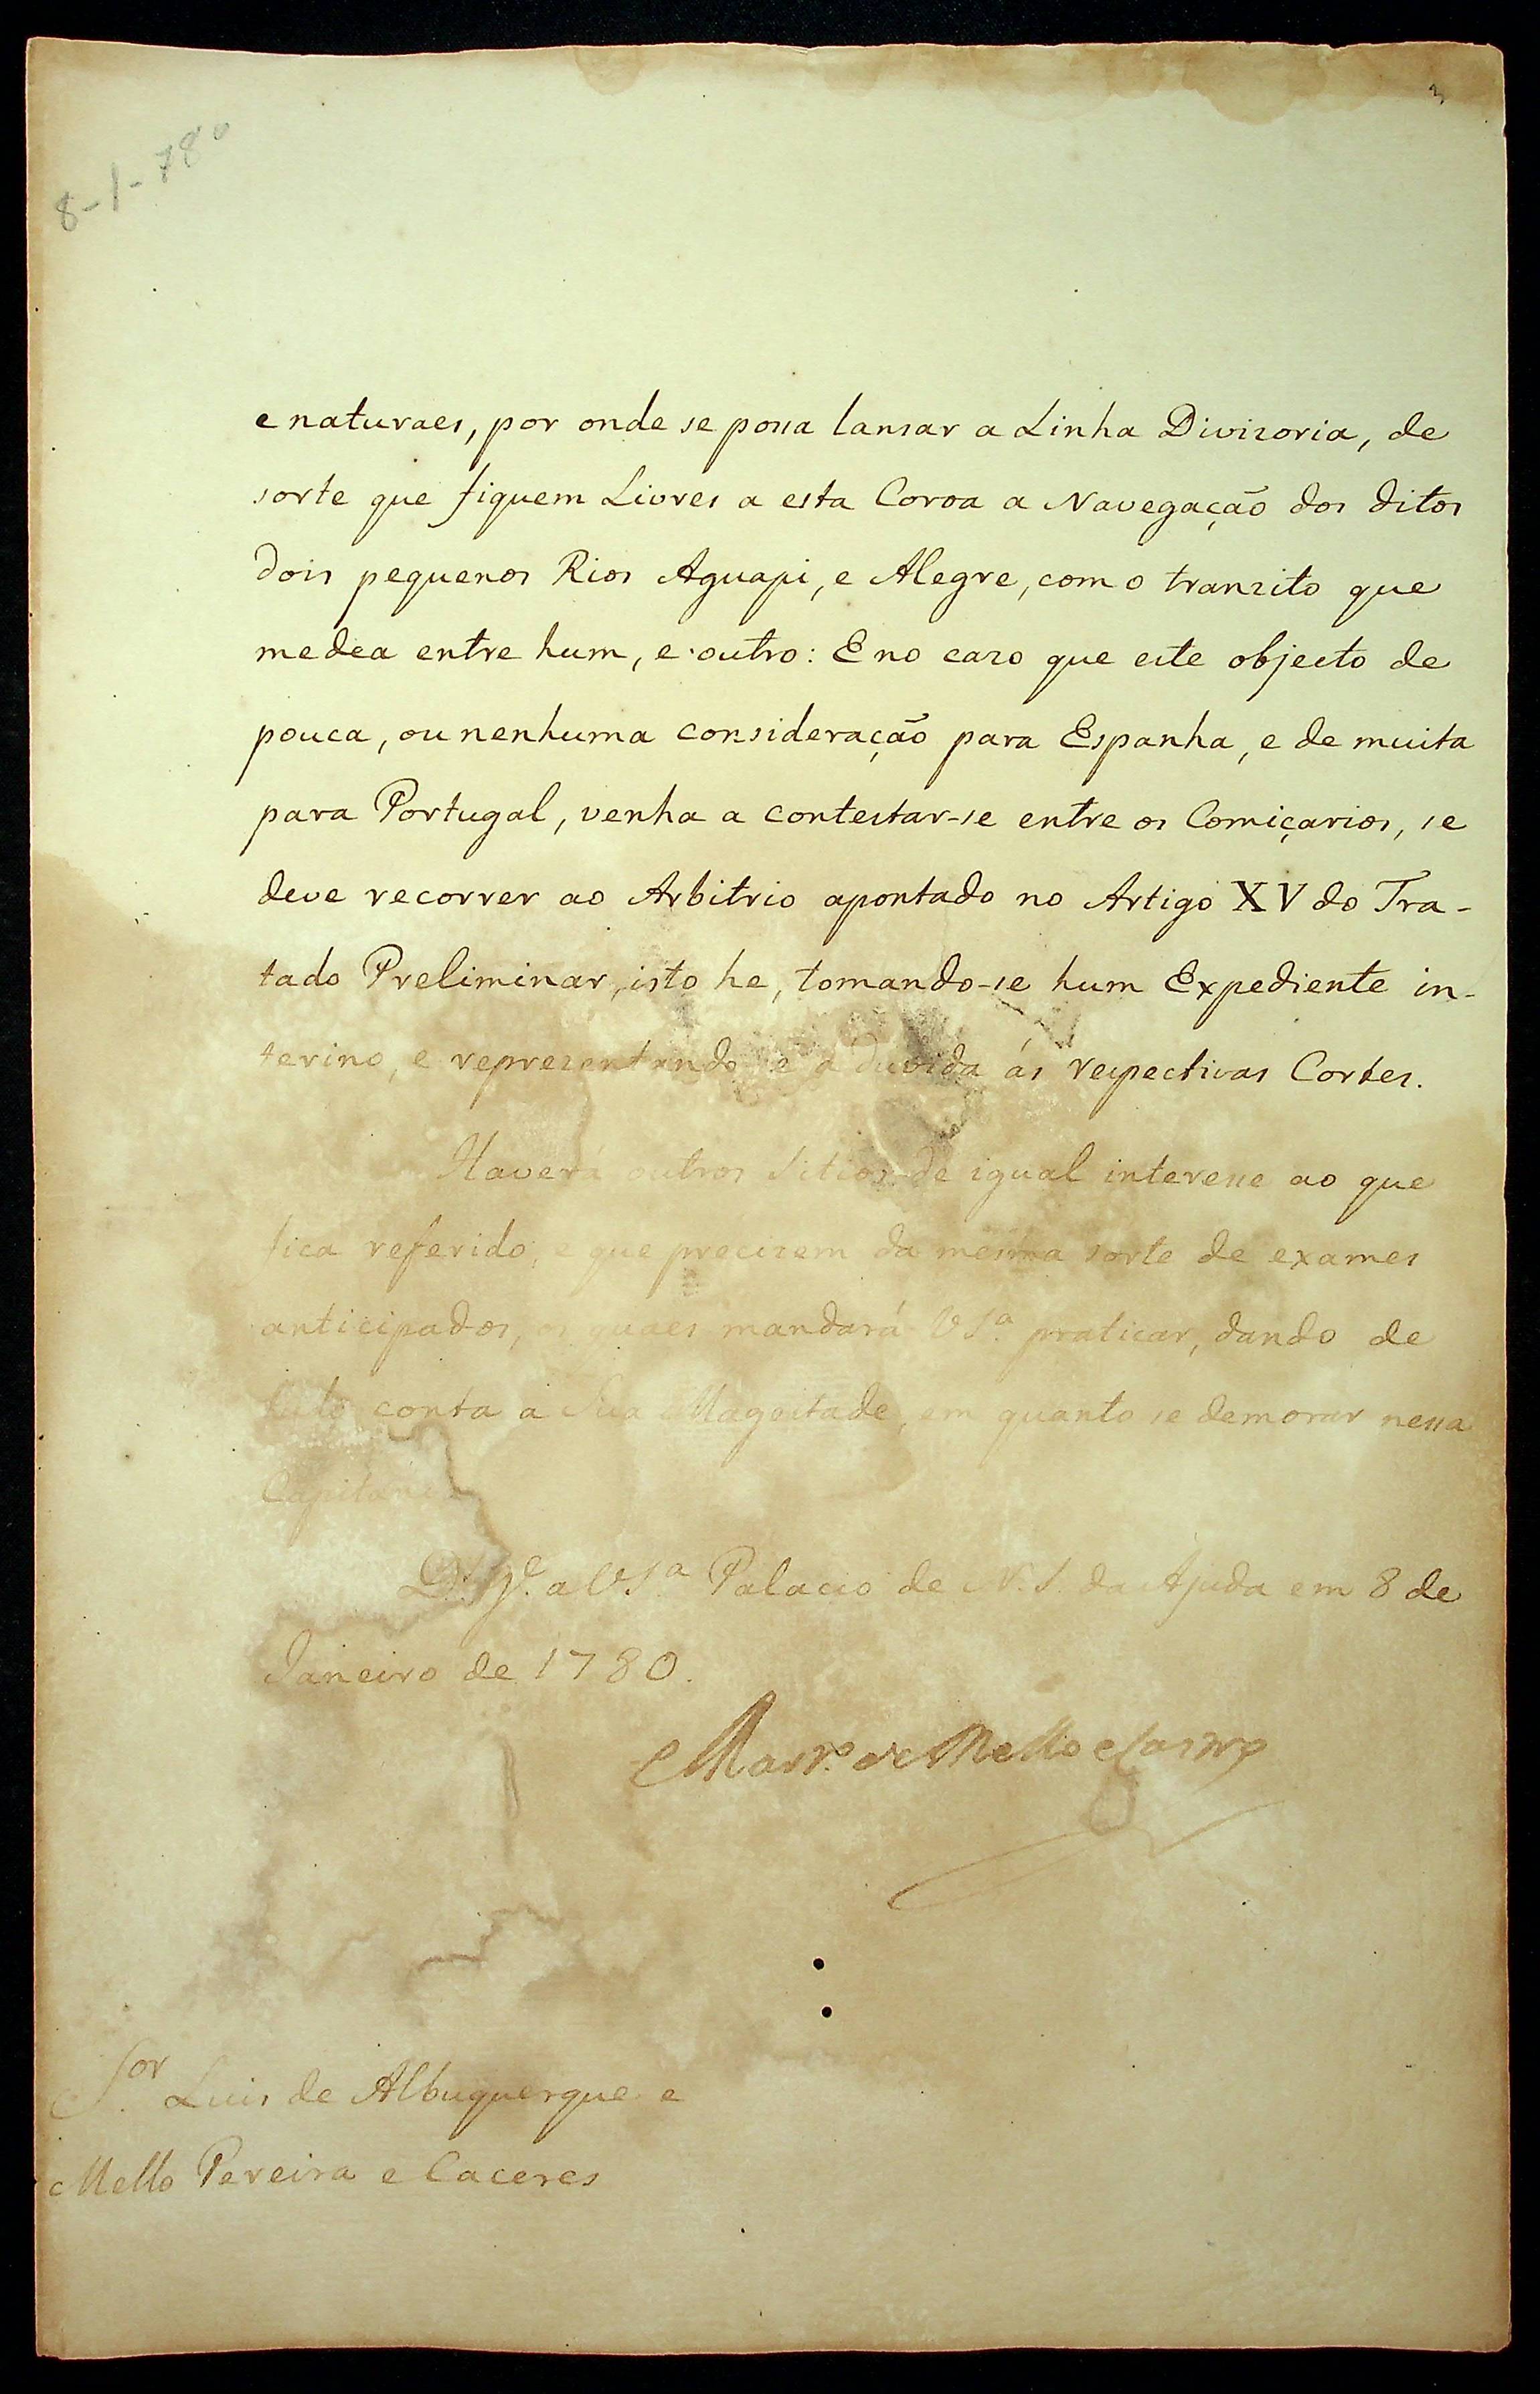 3
8-1-780
e naturaes, por onde se possa lansar a Linha Divizoria, de
sorte que fiquem Livres a esta Coroa a Navegação dos ditos
dois pequenos Rios Aguapi, e Alegre, com o tranzito que
medea entre hum, e outro: E no cazo que este objecto de
pouca, ou nenhuma consideração para Espanha, e de muita
para Portugal, venha a contestar-se entre os Comiçarios, se
deve recorrer ao Arbitrio apontado no Artigo XV do Tra-
tado Preliminar, isto he, tomando-se hum Expediente in-
terino, e reprezentando-se a duvida ás respectivas Cortes.
Haverá outros Sitios de igual interesse ao que
fica referido, e que precizem da mesma sorte de exames
anticipados, os quaes mandará V Sª. praticar, dando de
tudo conta a Sua Magestade, em quanto se demorar nessa
Capitania.
D.s g.e a V.S.a Palacio de N. S. da Ajuda em 8 de
Janeiro de 1780.
Mart.o de Mello e Castro
S.or Luis de Albuquerque e
Mello Pereira e Caceres